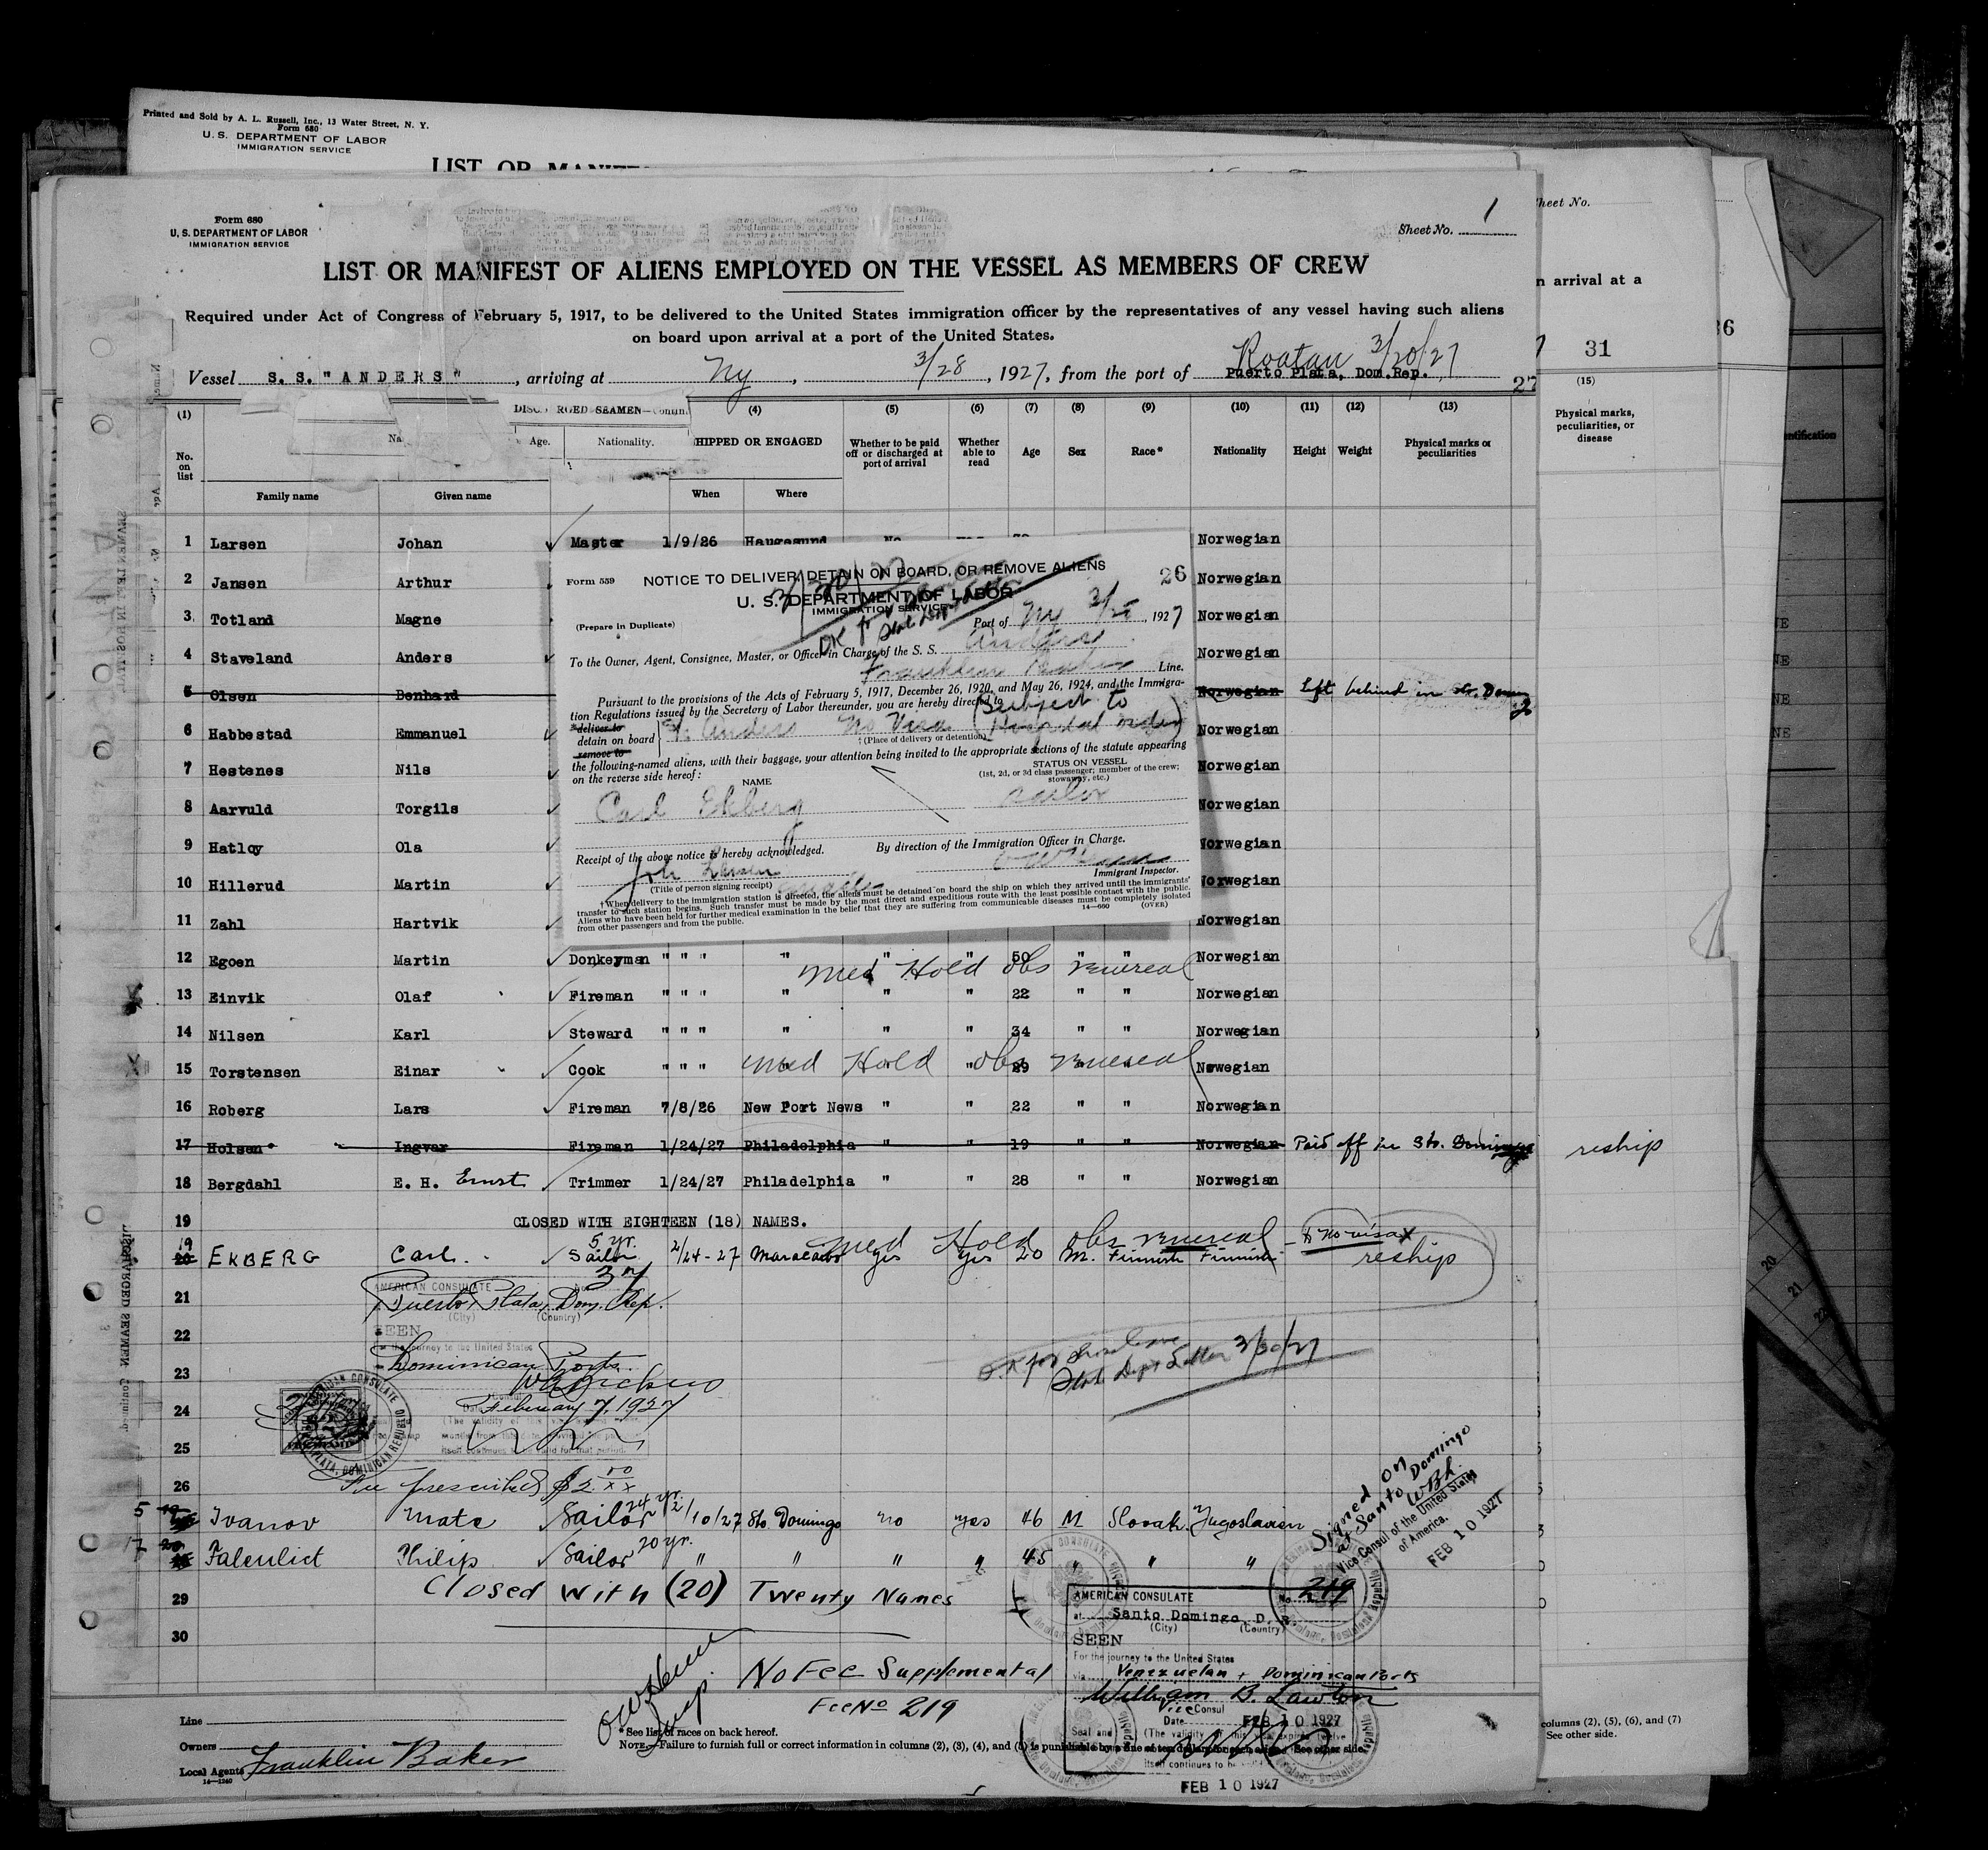 Printed and Sold by A. L. Russell, Inc., 13 Water Street, N. Y.
Form 680
U. S. DEPARTMENT OF LABOR
IMMIGRATION SERVICE
LIST OR
Form 680
U. S. DEPARTMENT OF LABOR
IMMIGRATION SERVICE
Sheet No. 1
LIST OR MANIFEST OF ALIENS EMPLOYED ON THE VESSEL AS MEMBERS OF CREW
Required under Act of Congress of February 5, 1917, to be delivered to the United States immigration officer by the representatives of any vessel having such aliens
on board upon arrival at a port of the United States.
Vessel S. S. "ANDERS", arriving at Ny, 3/28, 1927, from the port of Puerto Plata, Dom. Rep. Roatan 3/20/27
27
(1) (4) (5) (6) (7) (8) (9) (10) (11) (12) (13)
No. on list
Family name Given name
Age. Nationality.
SHIPPED OR ENGAGED When Where
Whether to be paid off or discharged at port of arrival
Whether able to read
Age Sex Race* Nationality Height Weight
Physical marks or peculiarities
1 Larsen Johan Master 1/9/26 Haugesund No Norwegian
2 Jansen Arthur Norwegian
3 Totland Magne Norwegian
4 Staveland Anders Norwegian
5 Olsen Denhard Norwegian left behind in
6 Habbestad Emmanuel Norwegian
7 Hestenes Nils Norwegian
8 Aarvuld Torgils Norwegian
9 Hatloy Ola Norwegian
10 Hillerud Martin Norwegian
11 Zahl Hartvik Norwegian
Form 559 NOTICE TO DELIVER, DETAIN ON BOARD, OR REMOVE ALIENS 26
U. S. DEPARTMENT OF LABOR
IMMIGRATION SERVICE
(Prepare in Duplicate) Port of Ny , 1927
To the Owner, Agent, Consignee, Master, or Officer in Charge of the S. S. Anders
Franklin Baker Line.
Pursuant to the provisions of the Acts of February 5, 1917, December 26, 1920, and May 26, 1924, and the Immigra-
tion Regulations issued by the Secretary of Labor thereunder, you are hereby directed to
*deliver to
detain on board
remove to
Anders No Visa (Subject to Hospital order)
†(Place of delivery or detention)
the following-named aliens, with their baggage, your attention being invited to the appropriate sections of the statute appearing
on the reverse side hereof:
NAME
STATUS ON VESSEL
(1st, 2d, or 3d class passenger; member of the crew; stowaway, etc.)
Carl Ekberg sailor
Receipt of the above notice is hereby acknowledged. By direction of the Immigration Officer in Charge.
Joh Larsen
Immigrant Inspector.
(Title of person signing receipt)
†When delivery to the immigration station is directed, the aliens must be detained on board the ship on which they arrived until the immigrants'
transfer to such station begins. Such transfer must be made by the most direct and expeditious route with the least possible contact with the public.
Aliens who have been held for further medical examination in the belief that they are suffering from communicable diseases must be completely isolated
from other passengers and from the public. 14—660 (OVER)
12 Egoen Martin Donkeyman " " " " " " 50 " " Norwegian
Med Hold obs venereal
13 Einvik Olaf Fireman " " " " " " 22 " " Norwegian
14 Nilsen Karl Steward " " " " " " 34 " " Norwegian
Med Hold obs venereal
15 Torstensen Einar Cook " " " " 29 Nowegian
16 Roberg Lars Fireman 7/8/26 New Port News " " 22 " " Norwegian
17 Holsen Ingvar Fireman 1/24/27 Philadelphia " " 19 " " Norwegian Paid off in Sto. Domingo reship
18 Bergdahl E. H. Ernst Trimmer 1/24/27 Philadelphia " " 28 " " Norwegian
19 CLOSED WITH EIGHTEEN (18) NAMES.
Med Hold obs venereal No visa
19 20 EKBERG Carl 5 yr. Sailor 2/24-27 Maracaibo yes yes 20 M. Finnish Finnish reship
21
AMERICAN CONSULATE
Puerto Plata, Dom. Rep.
(City) (Country)
22
SEEN
For the journey to the United States
Dominican Ports
23
O.K. for shore leave
State Dept Letter 3/30/27
24
February 7, 1927
25
26
Fee prescribed $2.00
5 Ivanov Mate Sailor 24 yr. 2/10/27 Sto. Domingo no yes 46 M Slovak Jugoslavien
17 Falenlict Philip Sailor 20 yr. " " " " 45 " " "
Signed on
at Santo Domingo
WBL.
Vice Consul of the United States
of America.
FEB 10 1927
29 Closed with (20) Twenty Names
30
No Fee Supplemental
Fee No 219
AMERICAN CONSULATE No. 219
at Santo Domingo, D. R.
(City) (Country)
SEEN
For the journey to the United States
via Venezuelan + Dominican Ports
William B. Lawton
Vice Consul
Date FEB 10 1927
Seal and
(The validity of this
FEB 10 1927
Line
Owners
Local Agents Franklin Baker
14—1240
*See list of races on back hereof.
NOTE.—Failure to furnish full or correct information in columns (2), (3), (4), and
See other side.
Sheet No.
n arrival at a
31
36
(15)
Physical marks, peculiarities, or disease
columns (2), (5), (6), and (7)
See other side.
20
21
22